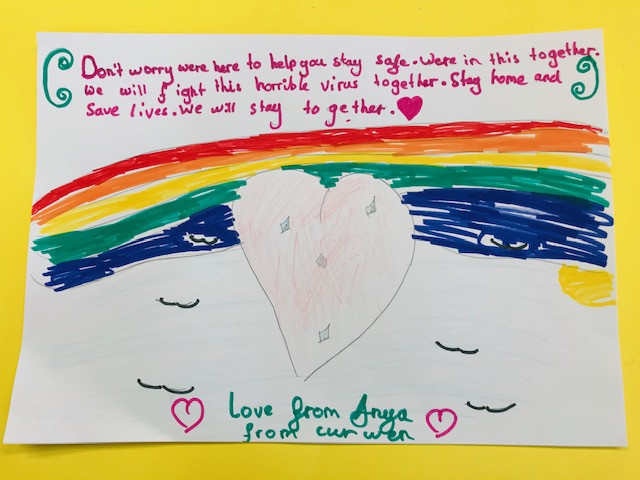 Don't worry were here to help you stay safe. Were in this together.
We will fight this horrible virus together. Stay home and
Save lives. We will stay to gether.
Love from Anya
from curwen